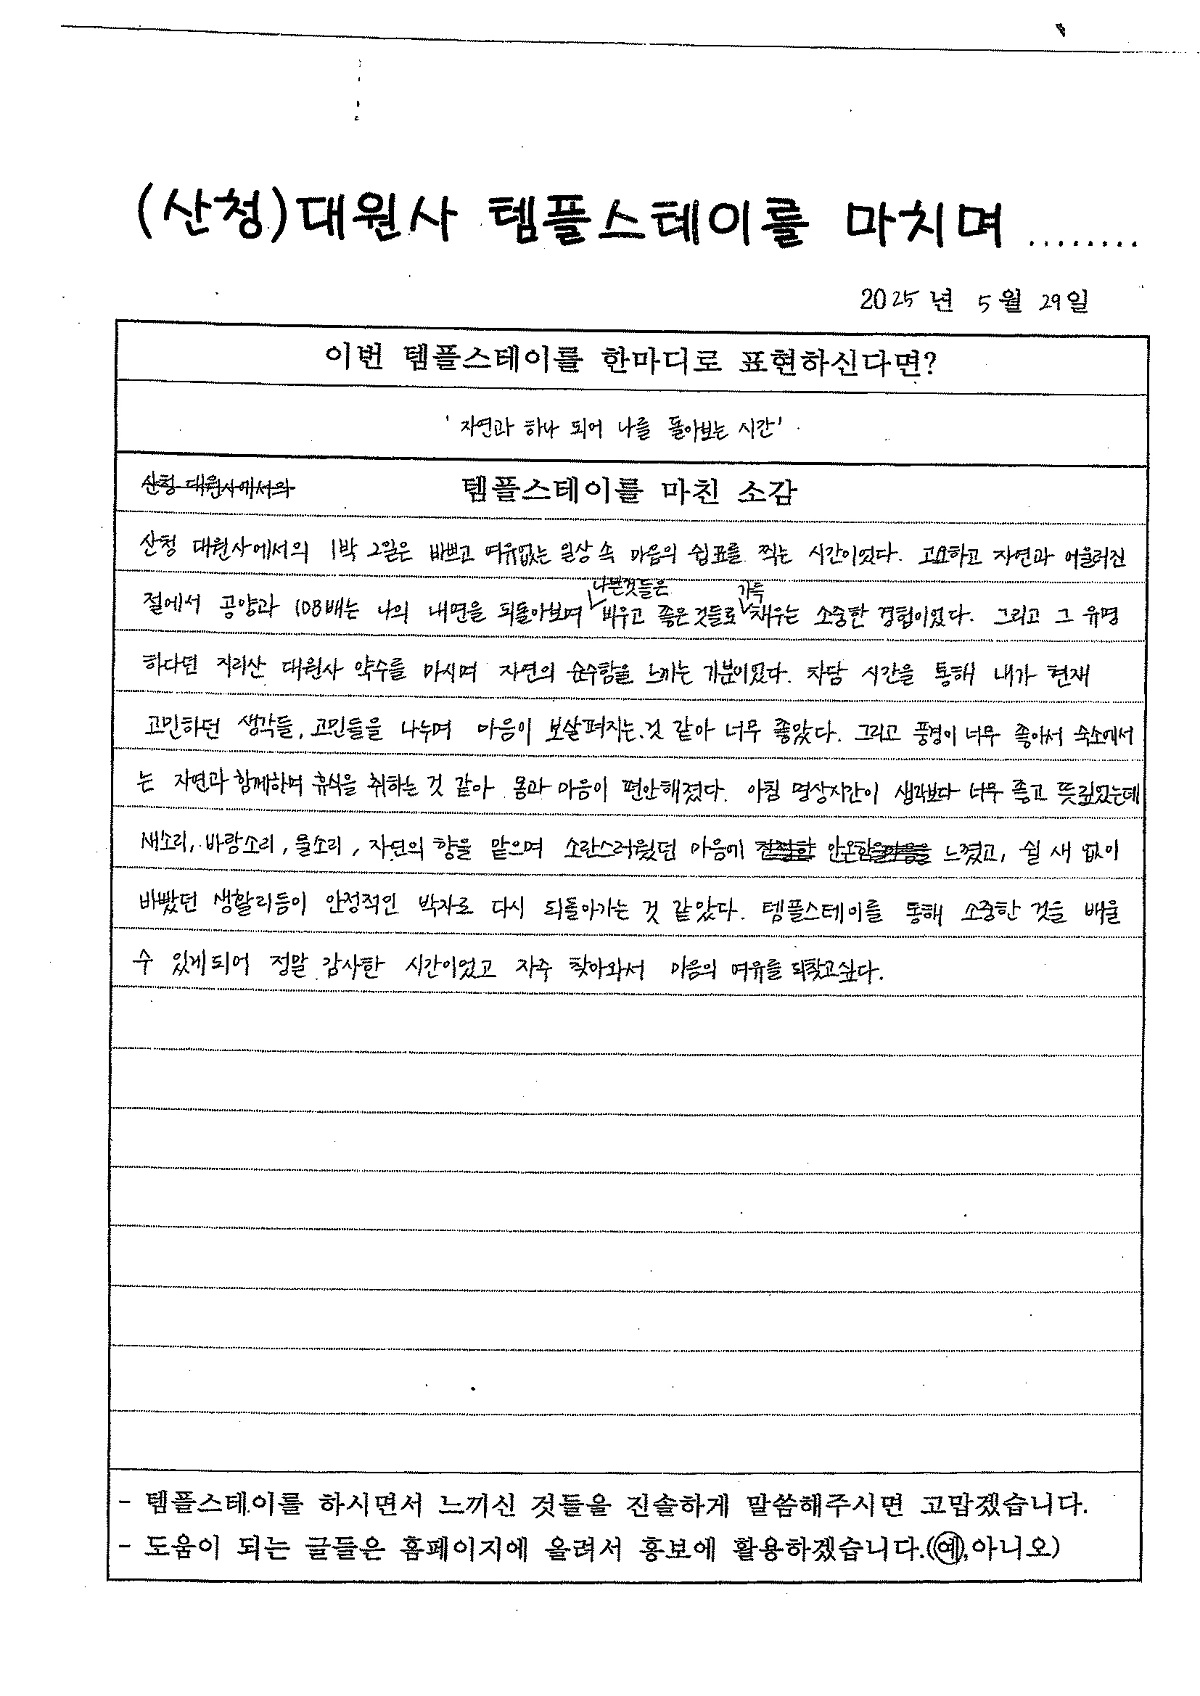 (산청)대원사 템플스테이를 마치며 ........
2025년 5월 29일
이번 템플스테이를 한마디로 표현하신다면?
'자연과 하나 되어 나를 돌아보는 시간'
산청 대원사에서의
템플스테이를 마친 소감
산청 대원사에서의 1박 2일은 바쁘고 여유없는 일상 속 마음의 쉼표를 찍는 시간이었다. 고요하고 자연과 어울러진
나쁜것들은 가득
절에서 공양과 108배는 나의 내면을 되돌아보며 비우고 좋은 것들로 채우는 소중한 경험이었다. 그리고 그 유명
하다던 지리산 대원사 약수를 마시며 자연의 순수함을 느끼는 기분이었다. 차담 시간을 통해 내가 현재
고민하던 생각들, 고민들을 나누며 마음이 보살펴지는 것 같아 너무 좋았다. 그리고 풍경이 너무 좋아서 숙소에서
는 자연과 함께하며 휴식을 취하는 것 같아 몸과 마음이 편안해졌다. 아침 명상시간이 생각보다 너무 좋고 뜻깊었는데
새소리, 바람소리, 물소리, 자연의 향을 맡으며 소란스러웠던 마음에 안온함을 느꼈고, 쉴 새 없이
바빴던 생활리듬이 안정적인 박자로 다시 되돌아가는 것 같았다. 템플스테이를 통해 소중한 것을 배울
수 있게되어 정말 감사한 시간이었고 자주 찾아와서 마음의 여유를 되찾고싶다.
- 템플스테이를 하시면서 느끼신 것들을 진솔하게 말씀해주시면 고맙겠습니다.
- 도움이 되는 글들은 홈페이지에 올려서 홍보에 활용하겠습니다.(예,아니오)